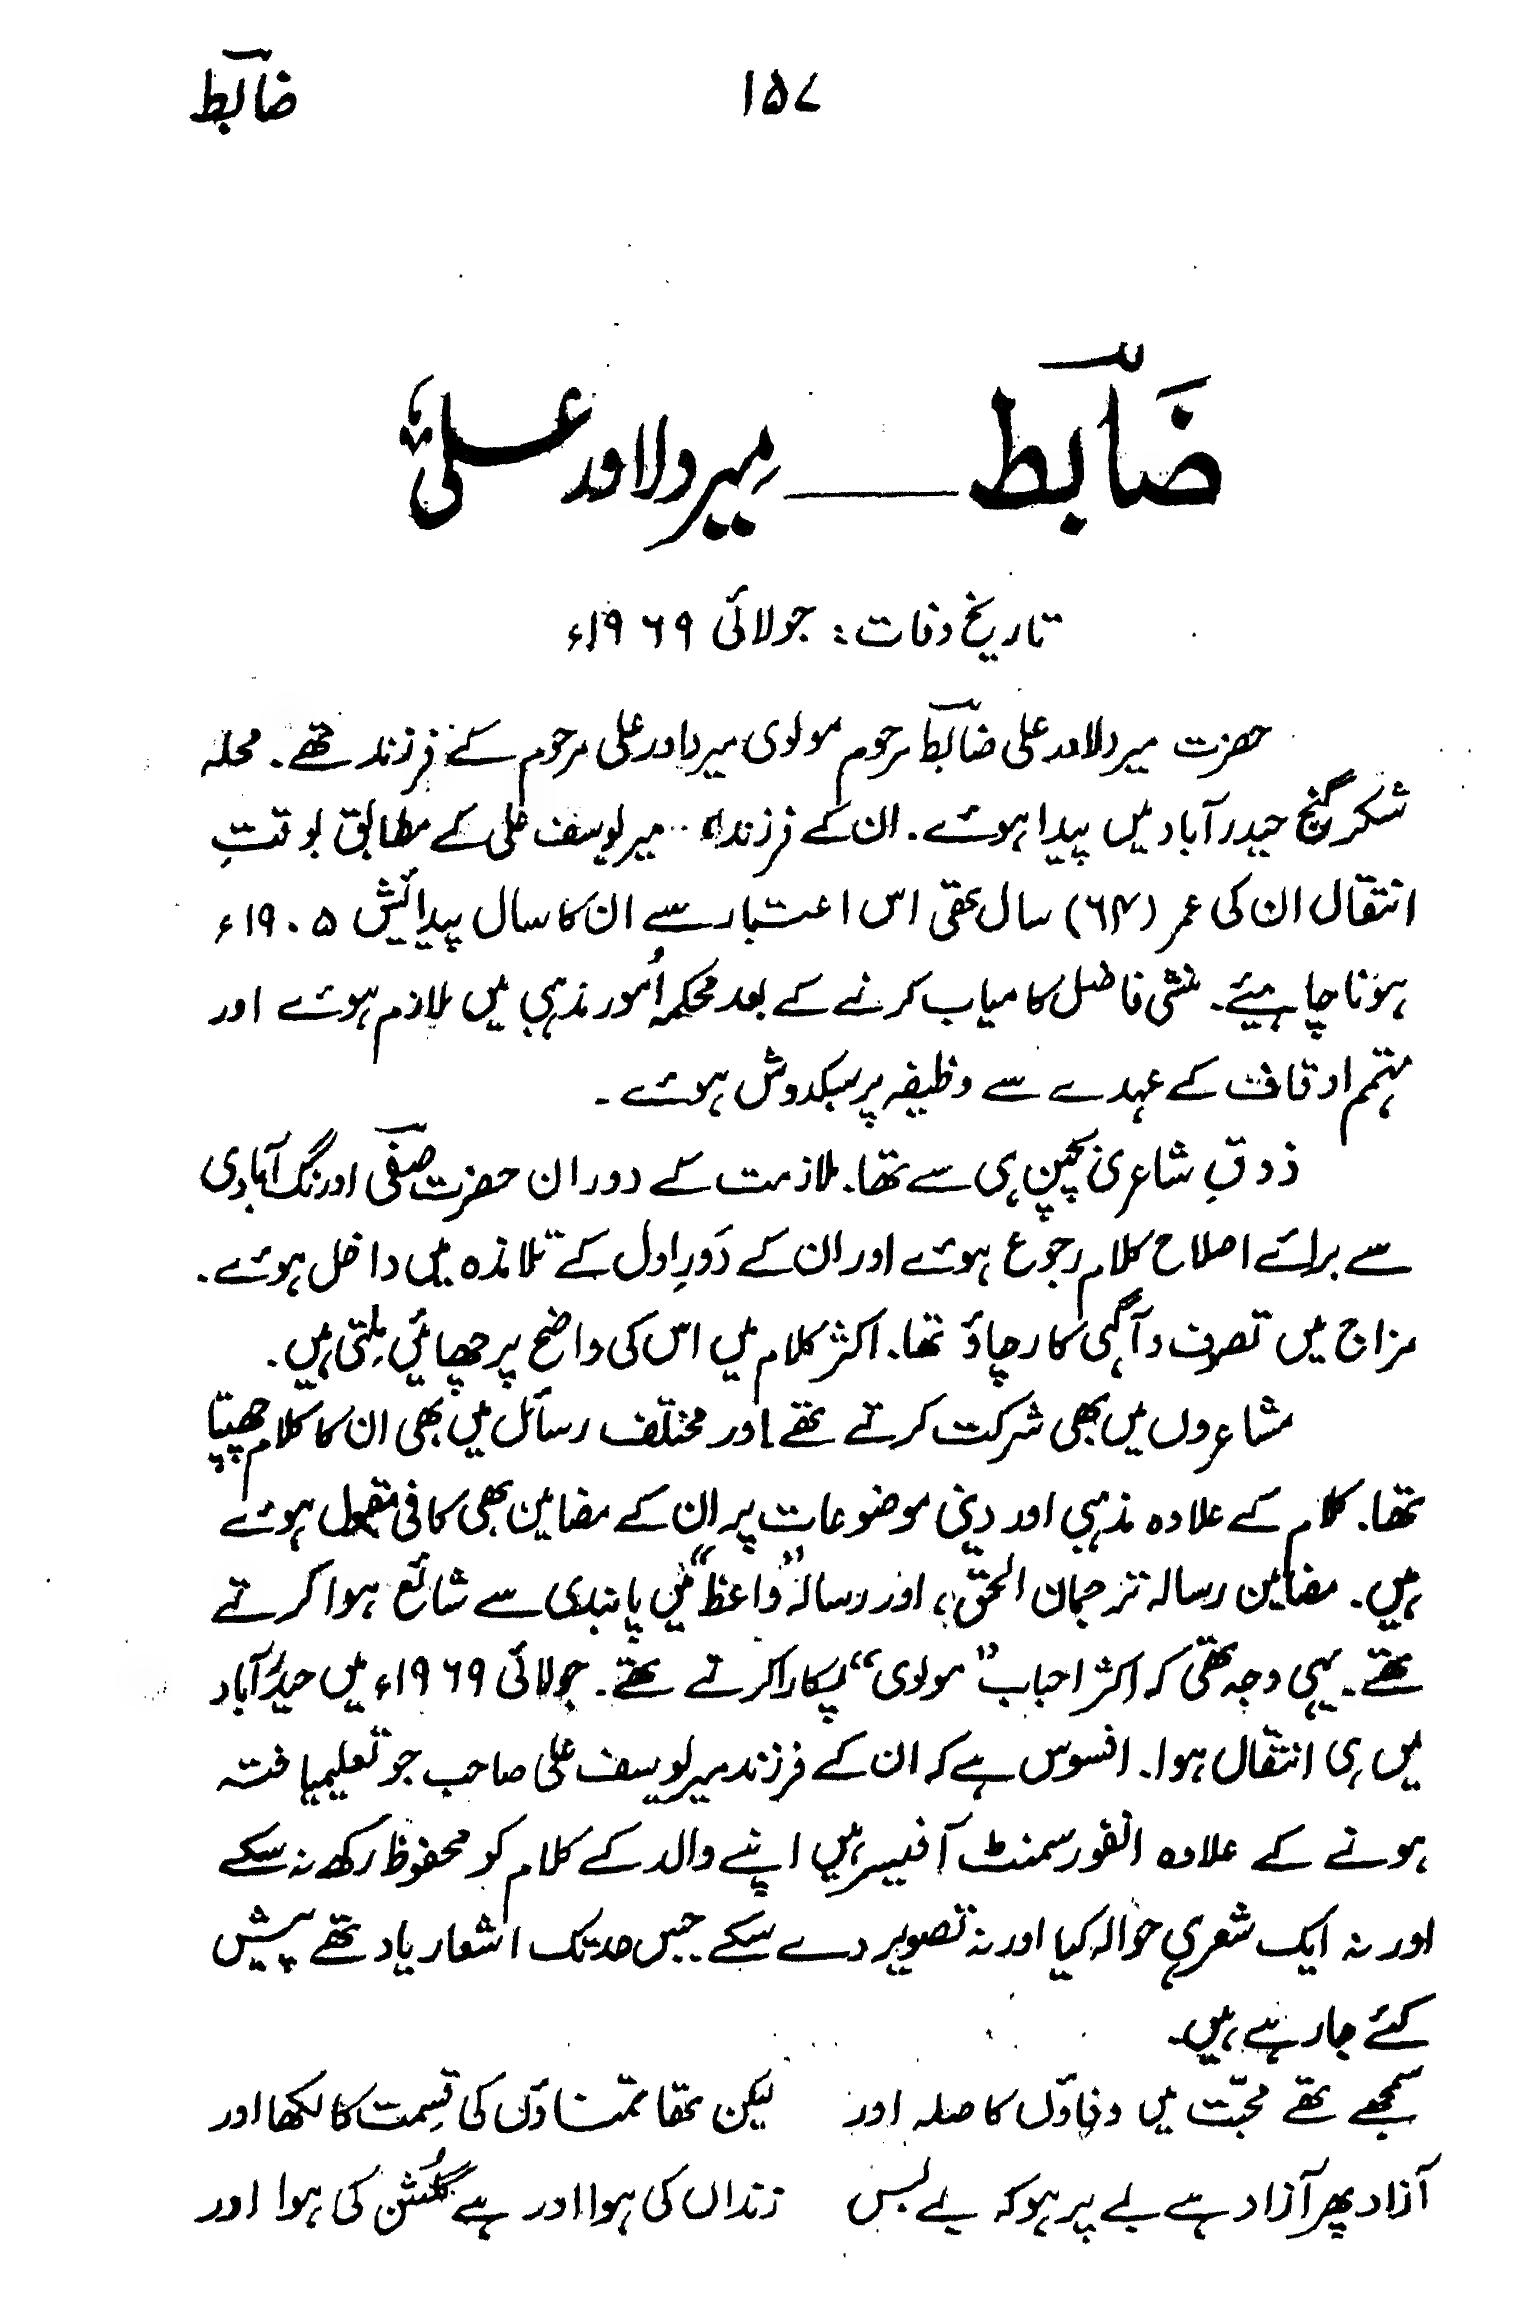 ضابطؔ
۱۵۷
ضابطؔ ــــ میر دلاور علیؒ
تاریخ وفات: جولائی ۱۹۶۹ء
حضرت میر دلاور علی ضابطؔ مرحوم مولوی میر داور علی مرحوم کے فرزند تھے۔ محلہ
شکر گنج حیدرآباد میں پیدا ہوئے۔ ان کے فرزند میر یوسف علی کے مطابق بوقتِ
انتقال ان کی عمر (۶۴) سال تھی اس اعتبار سے ان کا سال پیدائش ۱۹۰۵ء
ہونا چاہیئے۔ منشی فاضل کامیاب کرنے کے بعد محکمہ اُمور مذہبی میں ملازم ہوئے اور
مہتمم اوقاف کے عہدے سے وظیفہ پر سبکدوش ہوئے۔
ذوقِ شاعری بچپن ہی سے تھا۔ ملازمت کے دوران حضرت صفیؔ اورنگ آبادی
سے برائے اصلاح کلام رجوع ہوئے اور ان کے دَورِ اول کے تلامذہ میں داخل ہوئے۔
مزاج میں تصوف و آگہی کا رچاؤ تھا۔ اکثر کلام میں اس کی واضح پرچھائیں مِلتی ہیں۔
مشاعروں میں بھی شرکت کرتے تھے اور مختلف رسائل میں بھی ان کا کلام چھپتا
تھا۔ کلام کے علاوہ مذہبی اور دینی موضوعات پر ان کے مضامین بھی کافی مقبول ہوئے
ہیں۔ مضامین رسالہ ترجمان الحق، اور رسالہ ”واعظ“ میں پابندی سے شائع ہوا کرتے
تھے۔ یہی وجہ تھی کہ اکثر احباب ”مولوی“ پکارا کرتے تھے۔ جولائی ۱۹۶۹ء میں حیدرآباد
میں ہی انتقال ہوا۔ افسوس ہے کہ ان کے فرزند میر یوسف علی صاحب جو تعلیمیافتہ
ہونے کے علاوہ انفورسمنٹ آفیسر ہیں اپنے والد کے کلام کو محفوظ رکھ نہ سکے
اور نہ ایک شعر ہی حوالہ کیا اور نہ تصویر دے سکے۔ جس حد تک اشعار یاد تھے پیش
کئے جا رہے ہیں۔
سمجھے تھے محبّت میں وفاؤں کا صلہ اور لیکن تھا تمناؤں کی قِسمت کا لکھا اور
آزاد پھر آزاد ہے بے پر ہو کہ بے بس زنداں کی ہوا اور ہے گلشن کی ہوا اور